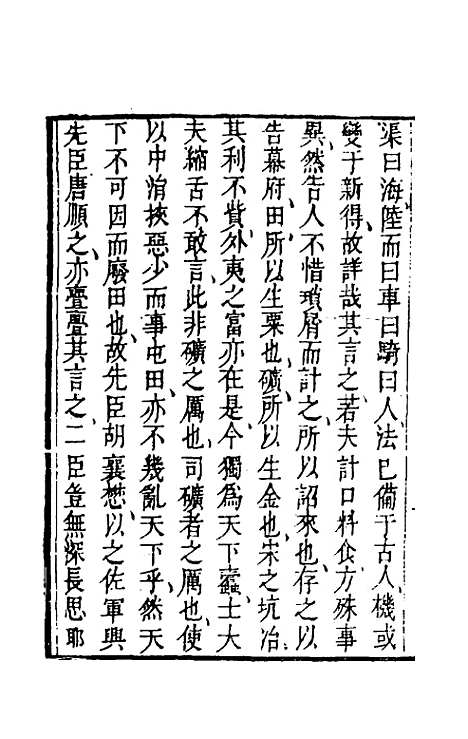 渠曰海陸而曰車曰騎曰人法已備于古人機或
變于新得故詳哉其言之若夫計口料食方殊事
異然告人不惜瑣屑而計之所以詔來也存之以
告幕府田所以生粟也礦所以生金也宋之坑冶
其利不貲外夷之富亦在是今獨為天下蠧士大
夫縮舌不敢言此非礦之厲也司礦者之厲也使
以中涓挾惡少而事屯田亦不幾亂天下乎然天
下不可因而廢田也故先臣胡襄懋以之佐軍興
先臣唐順之亦亹亹其言之二臣豈無深長思耶